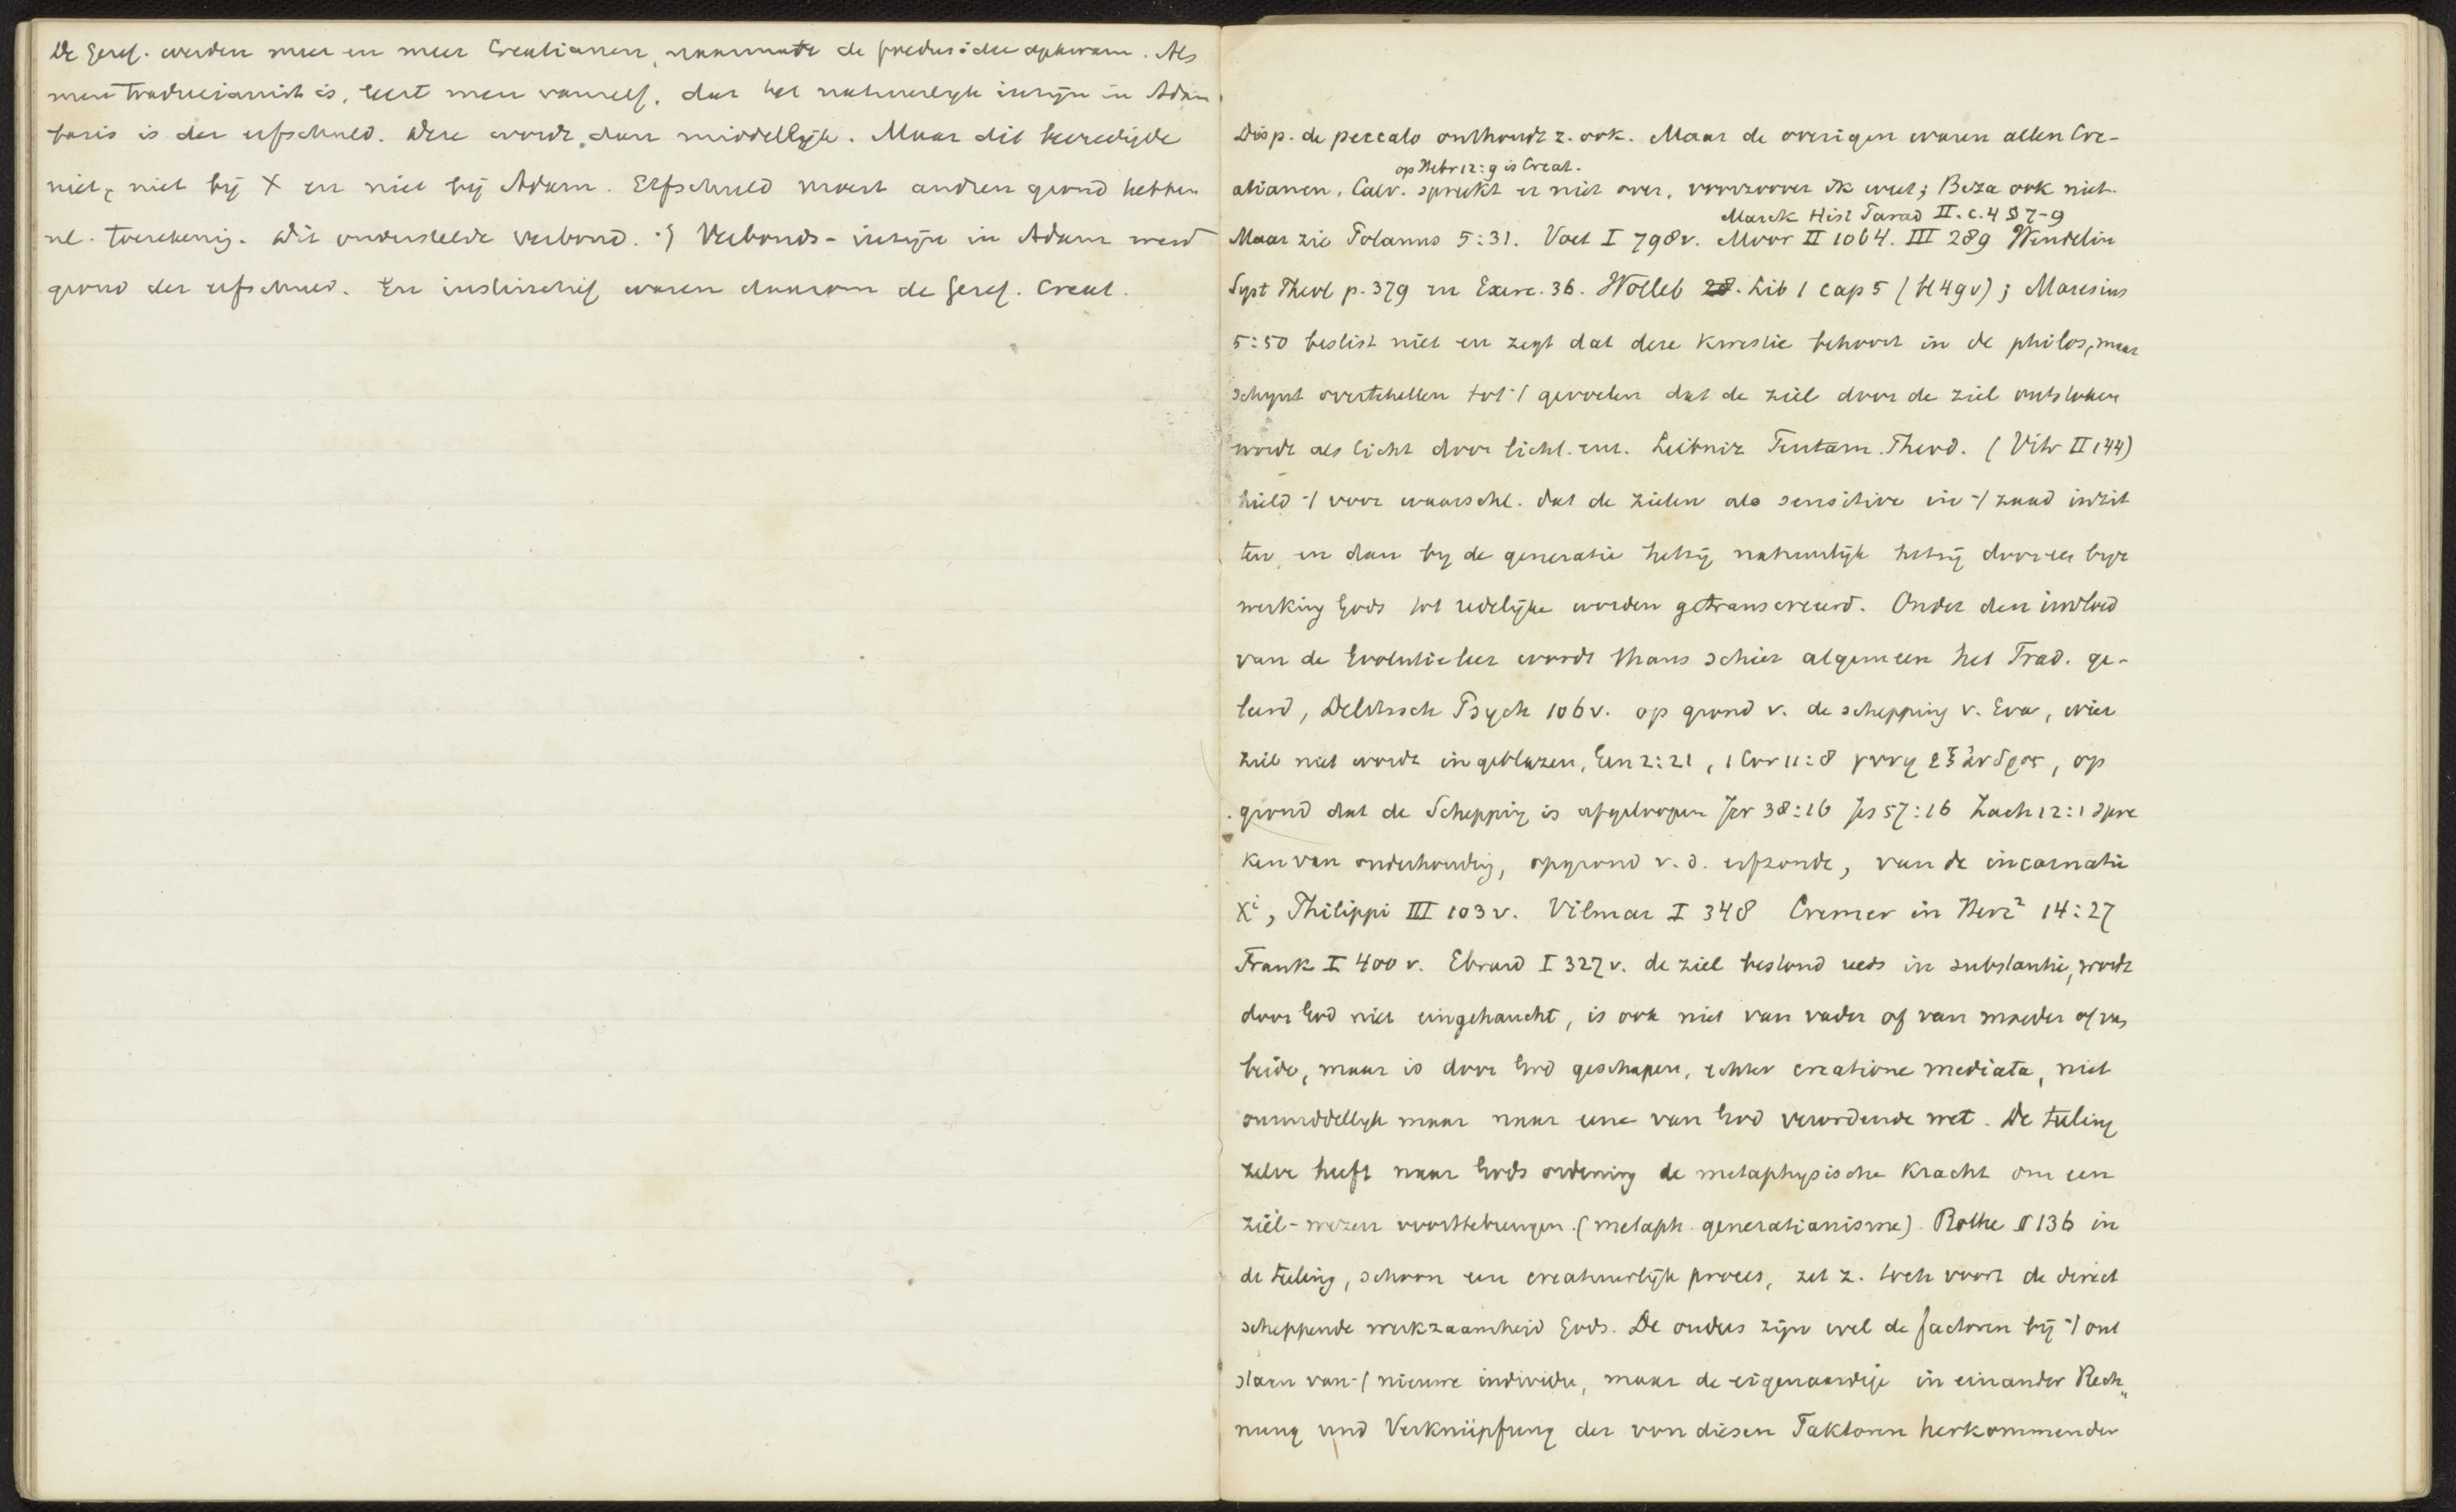 De Geref. werden meer en meer Creatianen, naarmate de foedus:idee opkwam. Als
men Traducianist is, leert men vanzelf. dat het natuurlyk inzijn in Adam
basis is der erfschuld. Deze wordt dan middellijk. Maar dit bevredigde
niet, niet bij X en niet bij Adam. Erfschuld moest andren grond hebben
nl. toerekenig. Dit onderstelde verbond. Verbonds-inzijn in Adam werd
grond der erfschuld. En instinctief waren daarom de Geref. Creat.
Disp. de peccato onthoudt z. ook. Maar de overigen waren allen Cre-
op Hebr 12:9 is Creat.
atianen, Calv. spreekt er niet over, voorzoover ik weet; Beza ook niet.
Marck Hist Parad II. c. 4 § 7-9
Maar zie Polanus 5:31. Voet I 798v. Moor II 1064. III 289 Wendelin
Syst Theol p. 379 en Exerc. 36. Wolleb Lib 1 cap 5 (bl 49v); Maresius
5:50 beslist niet en zegt dat deze kwestie behoort in de philos, maar
schynt overtehellen tot 't gevoelen dat de ziel door de ziel ontstoken
wordt als licht door licht. enz. Leibniz Tentam. Theod. (Vitr II 144)
hield 't voor waarschl. dat de zielen als sensitive in 't zaad inzit
ten, en dan by de generatie hetzij natuurlijk hetzij door een byz
werking Gods tot redelijke worden getranscreeerd. Onder den invloed
van de Evolutieleer wordt thans schier algemeen het Trad. ge-
leerd, Delitzsch Psych 106v. op grond v. de schepping v. Eva, wier
ziel niet wordt ingeblazen, Gen 2:21, 1 Cor 11:8 γυνη εξ ανδρος, op
grond dat de Schepping is afgeloopen Jer 38:16 Jes 57:16 Zach 12:1 spre
ken van onderhoudig, op grond v. d. erfzonde, van de incarnatie
Xi, Philippi III 103v. Vilmar I 348 Cremer in Herz² 14:27
Frank I 400v. Ebrard I 327v. de ziel bestond reeds in substantie, wordt
door God niet eingehaucht, is ook niet van vader of van moeder of van
beide, maar is door God geschapen, echter creatione mediata, niet
onmiddellyk maar naar eene van God verordende wet. De teeling
zelve heeft naar Gods ordening de metaphysische kracht om een
ziel-wezen voorttebrengen. (metaph. generatianisme). Rothe II 136 in
de teeling, schoon een creatuurlijk proces, zet z. toch voort de direct
scheppende werkzaamheid Gods. De ouders zijn wel de factoren bij 't ont
staan van 't nieuwe individu, maar de eigenaardige in einander Rech„
nung und Verknüpfung der von diesen Faktoren herkommenden